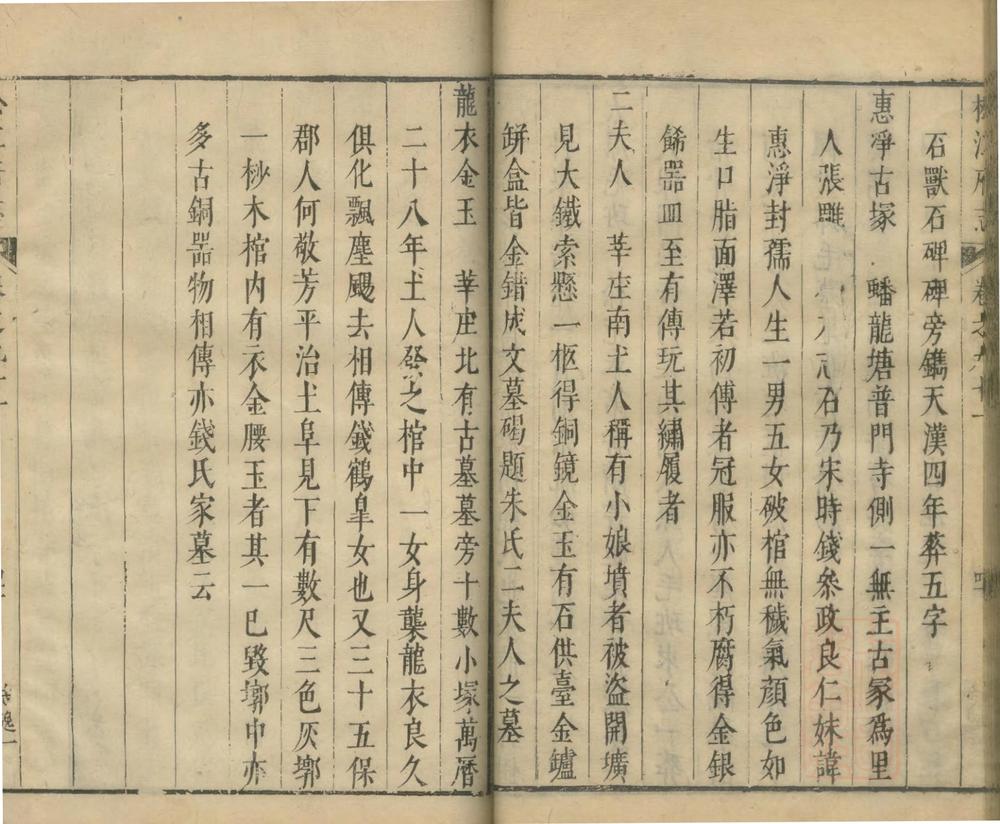 石獸石碑碑旁鐫天漢四年葬五字
惠淨古塚　蟠龍塘普門寺側一無主古冢爲里
人張雕石乃宋時錢參政良仁妹諱
惠淨封孺人生一男五女破棺無穢氣顔色如
生口脂面澤若初傅者冠服亦不朽腐得金銀
餙器皿至有傳玩其繡履者
二夫人　莘庄南土人稱有小娘墳者被盜開壙
見大鐵索懸一柩得銅鏡金玉有石供臺金鑪
缾盒皆金錯成文墓碣題朱氏二夫人之墓
龍衣金玉　莘庄北有古墓墓旁十數小塚萬曆
二十八年土人發之棺中一女身襲龍衣良久
俱化飄塵颺去相傳錢鶴臯女也又三十五保
郡人何敬芳平治土阜見下有數尺三色灰墎
一杪木棺內有衣金腰玉者其一已毀墎中亦
多古銅器物相傳亦錢氏家墓云